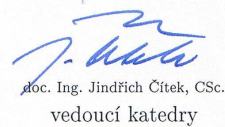 doc. Ing. Jindřich Čítek, CSc.
vedoucí katedry